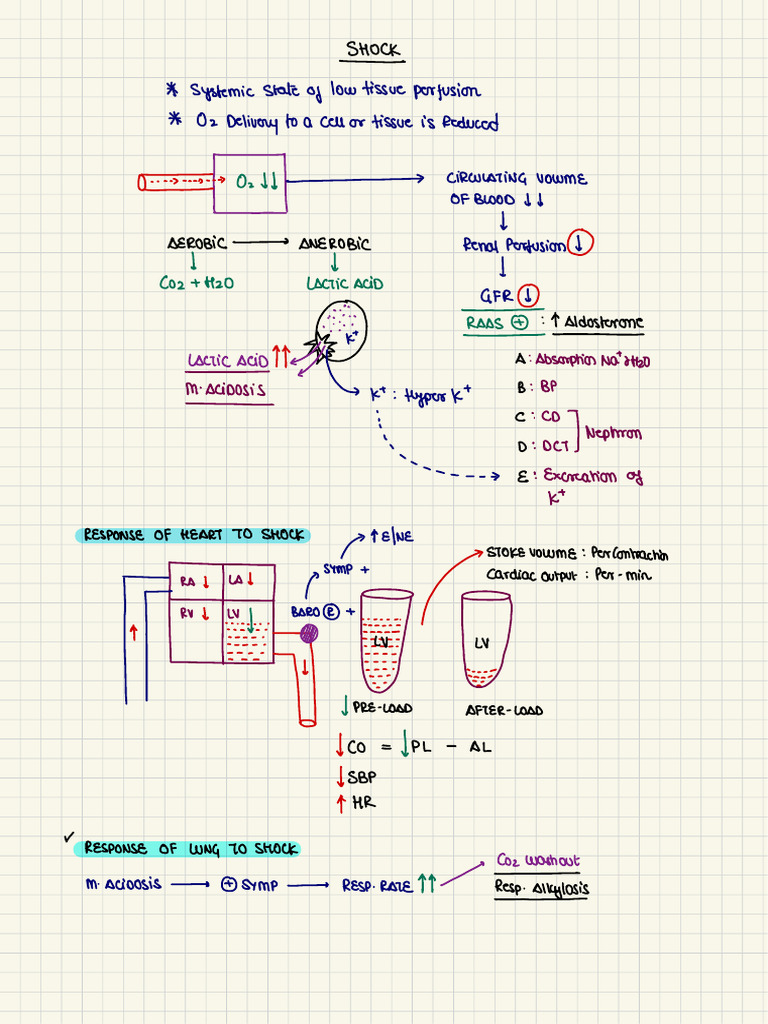 SHOCK
* Systemic State of low tissue perfusion
* O2 Delivery to a cell or tissue is Reduced
O2 ↓↓
CIRCULATING VOLUME
OF BLOOD ↓↓
Renal Perfusion ↓
GFR ↓
RAAS + : ↑ Aldosterone
AEROBIC → ANEROBIC
CO2 + H2O
LACTIC ACID
K+
LACTIC ACID ↑↑
M. ACIDOSIS
K+ : Hyper K+
A : Absorption Na+ & H2O
B : BP
C : CD
D : DCT
Nephron
E : Excreation of
K+
RESPONSE OF HEART TO SHOCK
↑ E/NE
SYMP +
BARO R +
RA ↓
LA ↓
RV ↓
LV ↓
↑
↓
LV
LV
STOKE VOLUME : Per Contraction
Cardiac output : Per - min
↓ PRE-LOAD
AFTER-LOAD
↓ CO = ↓ PL - AL
↓ SBP
↑ HR
✓
RESPONSE OF LUNG TO SHOCK
M. ACIDOSIS → + SYMP → RESP. RATE ↑↑
CO2 Washout
Resp. Alkylosis